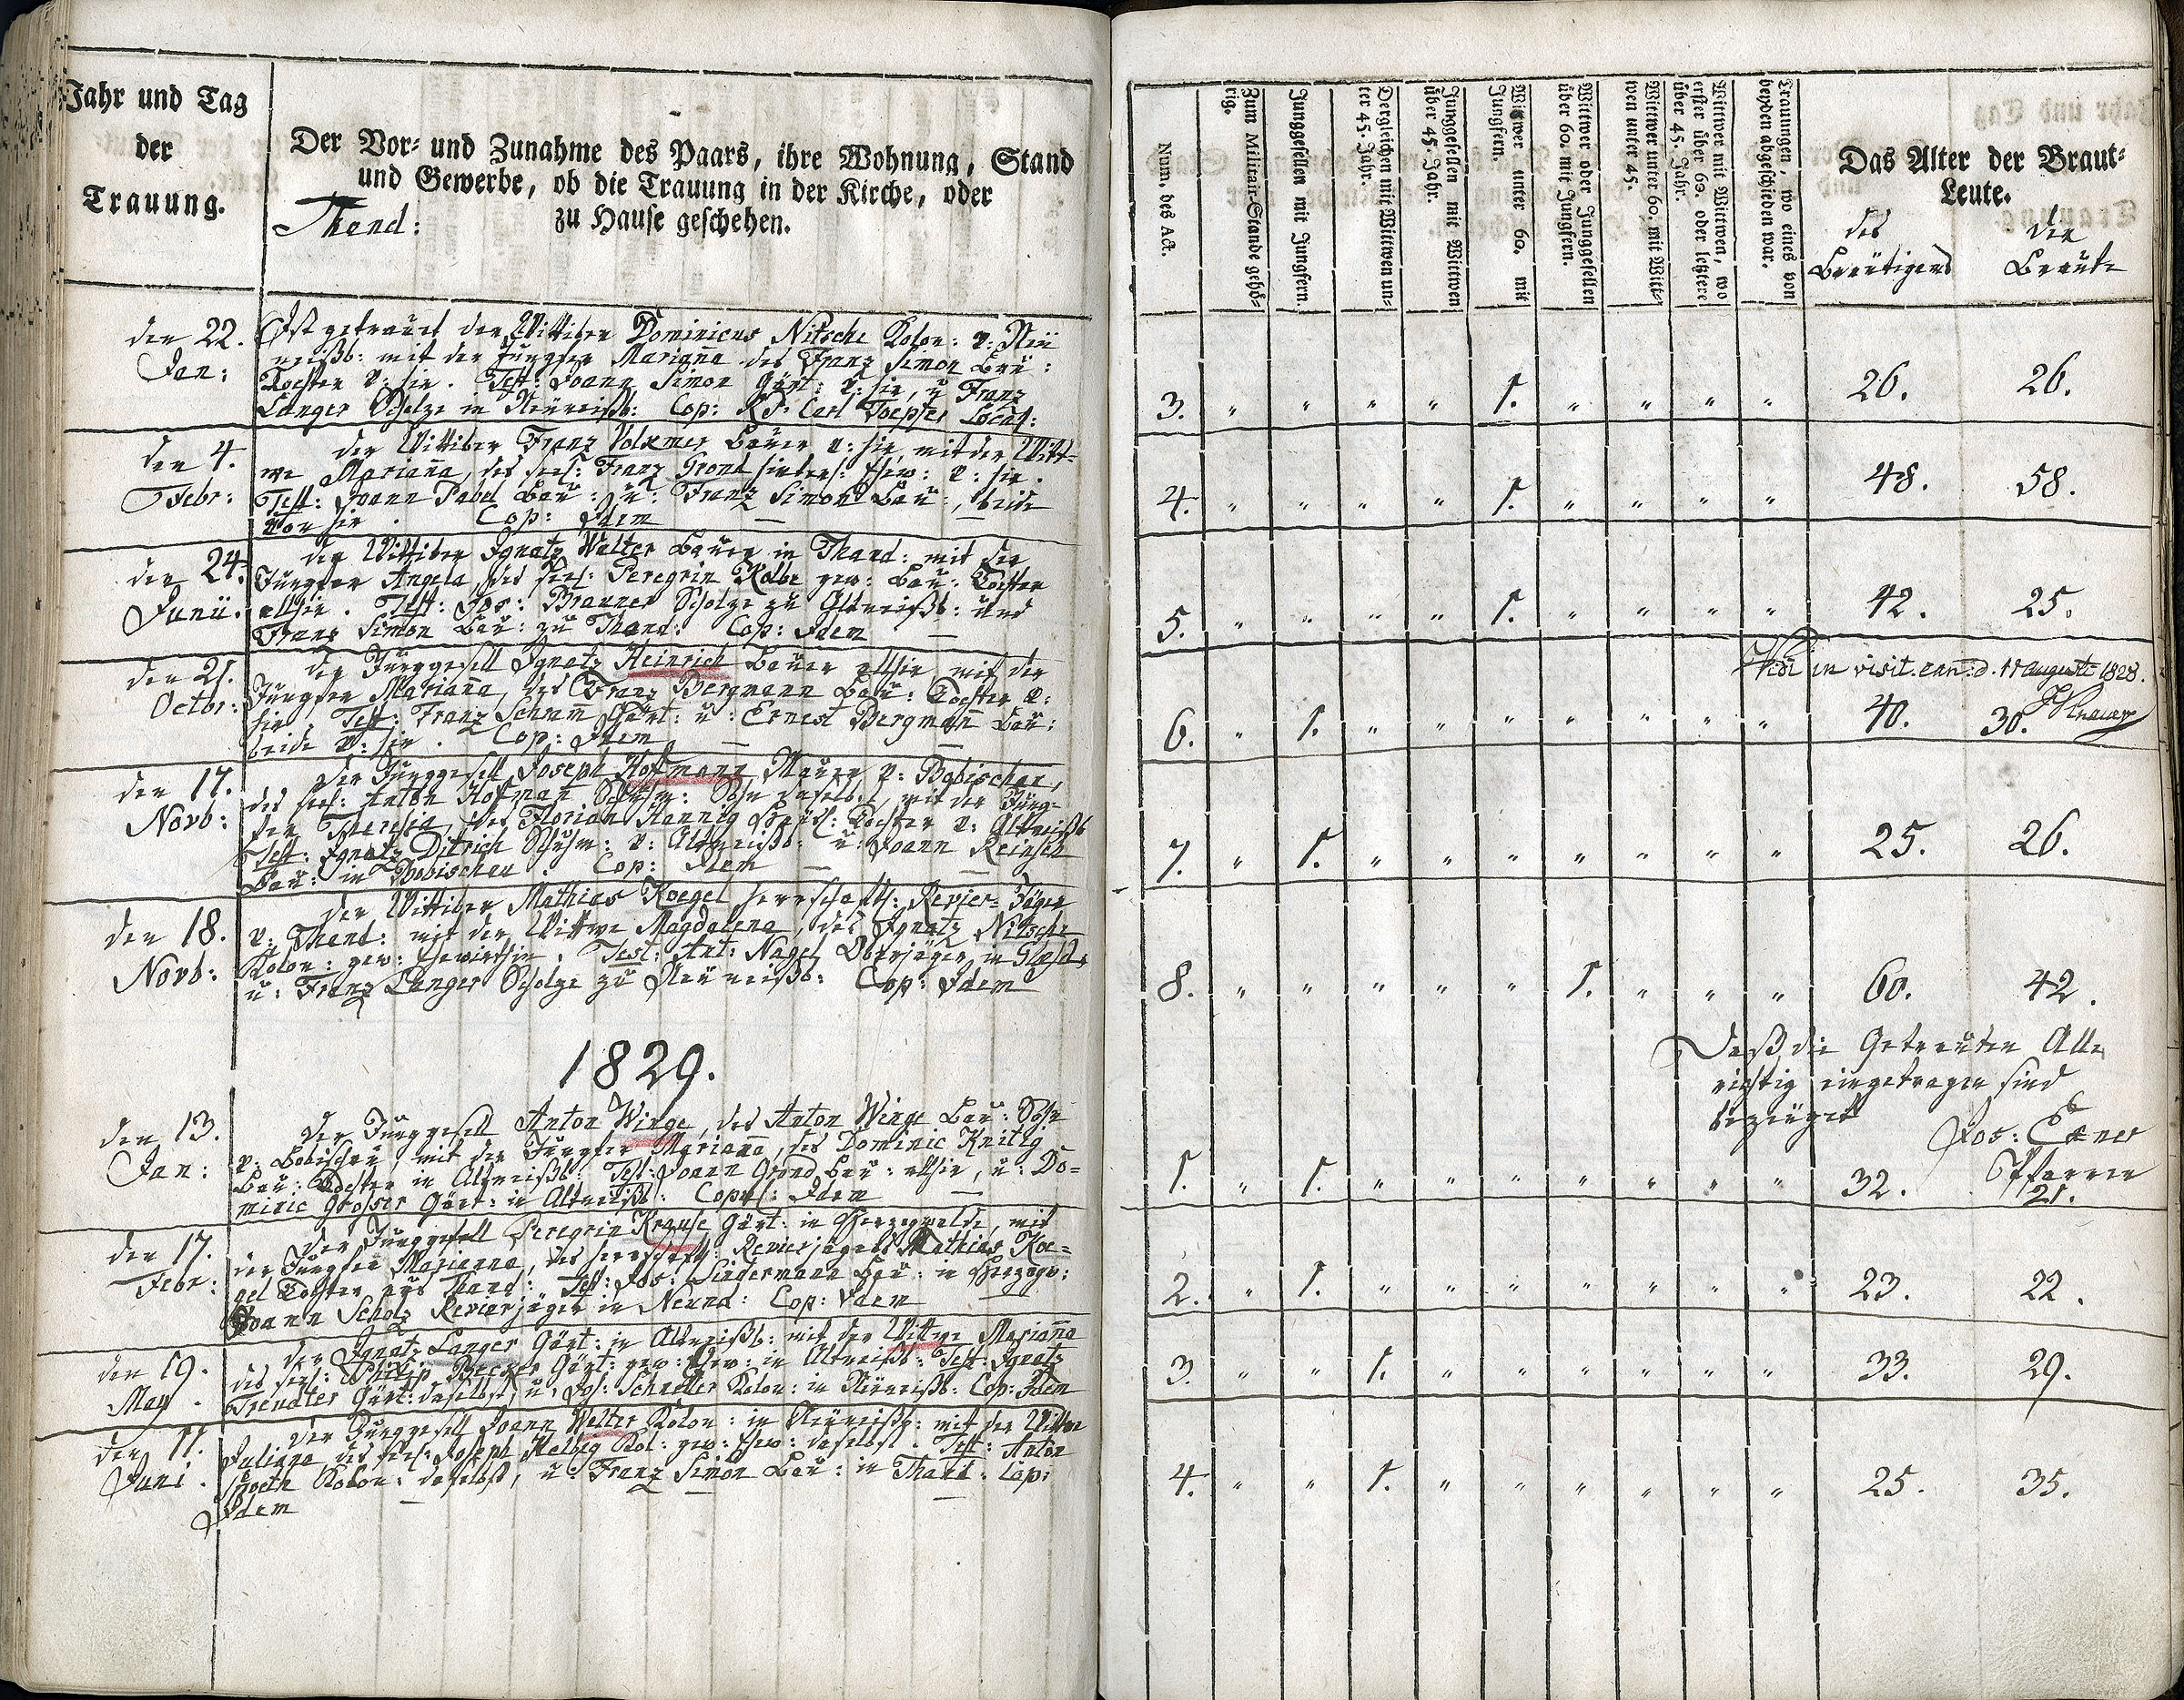 Jahr und Tag
der
Trauung.
Der Vor- und Zunahme des Paars, ihre Wohnung, Stand
und Gewerbe, ob die Trauung in der Kirche, oder
zu Hause geschehen.
Thand:
Num. des Act.
Zum Militair-Stande gehö-
rig.
Junggesellen mit Jungfern.
Dergleichen mit Wittwen un-
ter 45. Jahr.
Junggesellen mit Wittwen
über 45. Jahr.
Wittwer unter 60. mit
Jungfern.
Wittwer oder Junggesellen
über 60. mit Jungfern.
Wittwer unter 60. mit Witt-
wen unter 45.
Wittwer mit Wittwen, wo
erster über 60. oder letztere
über 45. Jahr.
Trauungen, wo eines von
beyden abgeschieden war.
Das Alter der Braut-
Leute.
des
Bräutigams
der
Braut
den 22.
Jan:
Ist getraut der Wittiber Dominicus Nitsche Kolon: v: Neü
weißb: mit der Jungfer Mariana des Franz Simon Bau:
Tochter v: hir. Test: Joann Simon Gärt: v: hir, u Franz
Langer Scholze in Neüweißb: Cop: P. Carl Toepfer Local:
3. " " " " 1. " " " " 26. 26.
den 4.
Febr:
der Wittiber Franz Volkmer Bauer v: hir, mit der Witt-
we Mariana, des seel: Franz Grond hinterl: Ehew: v: hir.
Test: Joann Pabel Bau: u: Franz Simon Bau:, beide
von hir. Cop: Idem
4. " " " " 1. " " " " 48. 58.
den 24.
Junü.
der Wittiber Ignatz Walter Bauer in Thand: mit der
Jungfer Angela, des seel: Peregrin Kolbe gew: Bau: Tochter
allhir. Test: Jos: Brauner Scholze zu Altweißb: und
Franz Simon Bau: zu Thand: Cop: Idem
5. " " " " 1. " " " " 42. 25.
Vidi in visit. can: d. 17 august 1828.
den 21.
Octbr:
der Junggesell Ignatz Heinrich Bauer allhir, mit der
Jungfer Mariana, des Franz Bergmann Bau: Tochter v:
hir. Test: Franz Schram Gärt: u: Ernest Bergman Bau:
beide v: hir. Cop: Idem
6. " 1. " " " " " " " 40. 30.
den 17.
Novb:
der Junggesell Joseph Hofmann Maurer v: Bobischau,
des seel: Anton Hofman Schuhm: Sohn daselbst, mit der Jung-
fer Theresia, des Florian Hannig Tochter v: Altweißb
Test: Ignatz Ditrich Schuhm: v: Altweißb: u: Joann Reinsch
Bau: in Bobischau. Cop: Idem
7. " 1. " " " " " " " 25. 26.
den 18.
Novb:
der Wittiber Mathias Koegel herrschaftl: Revier-Jäger
v: Thand: mit der Wittwe Magdalena, des Ignatz Nitsche
Kolon: gew: Ehewirthin. Test: Ant: Nagel Oberjäger in
u: Franz Langer Scholze zu Neüweißb: Cop: Idem
8. " " " " " 1. " " " 60. 42.
Daß die Getrauten Alle
richtig eingetragen sind
bezeüget
Jos: Exner
Pfarrer
1829.
den 13.
Jan:
Der Junggesell Anton Winge, des Anton Winge Bau: Sohn
v: Bobischau, mit der Jungfer Mariana, des Dominic Knittig
Bau: Tochter in Altweißb: Test: Joann Grond Bau: allhir, u: Do=
minic Grosser Gärt: in Altweißb: Copul: Idem
1. " 1. " " " " " " " 32. 21.
den 17.
Febr:
Der Junggesell Peregrin Krause Gärt: in Herzogwalde, mit
der Jungfer Marianna, des herrschaftl: Revierjägers Mathias Koe=
gel Tochter aus Thand: Test: Jos: Lindermann Bau: in Herzogw:
Joann Scholz Revierjäger in Neund: Cop: Idem
2. " 1. " " " " " " " 23. 22.
den 19.
May.
der Ignatz Langer Gärt: in Altweißb: mit der Wittwe Mariana
des seel: Philip Becker Gärt: gew: Ehew: in Altweißb: Test: Ignatz
Trendter Gärt: daselbst, u: Jos: Schneller Kolon: in Neüweißb: Cop: Idem
3. " " 1. " " " " " " 33. 29.
den 11.
Juni.
der Junggesell Joann Welter Kolon: in Neüweißb: mit der Wittwe
Juliana, des seel: Joseph Helbig Kol: gew: Ehew: daselbst. Test: Anton
Spoeth Kolon: daselbst, u: Franz Simon Bau: in Thand: Cop:
Idem
4. " " 1. " " " " " " 25. 35.